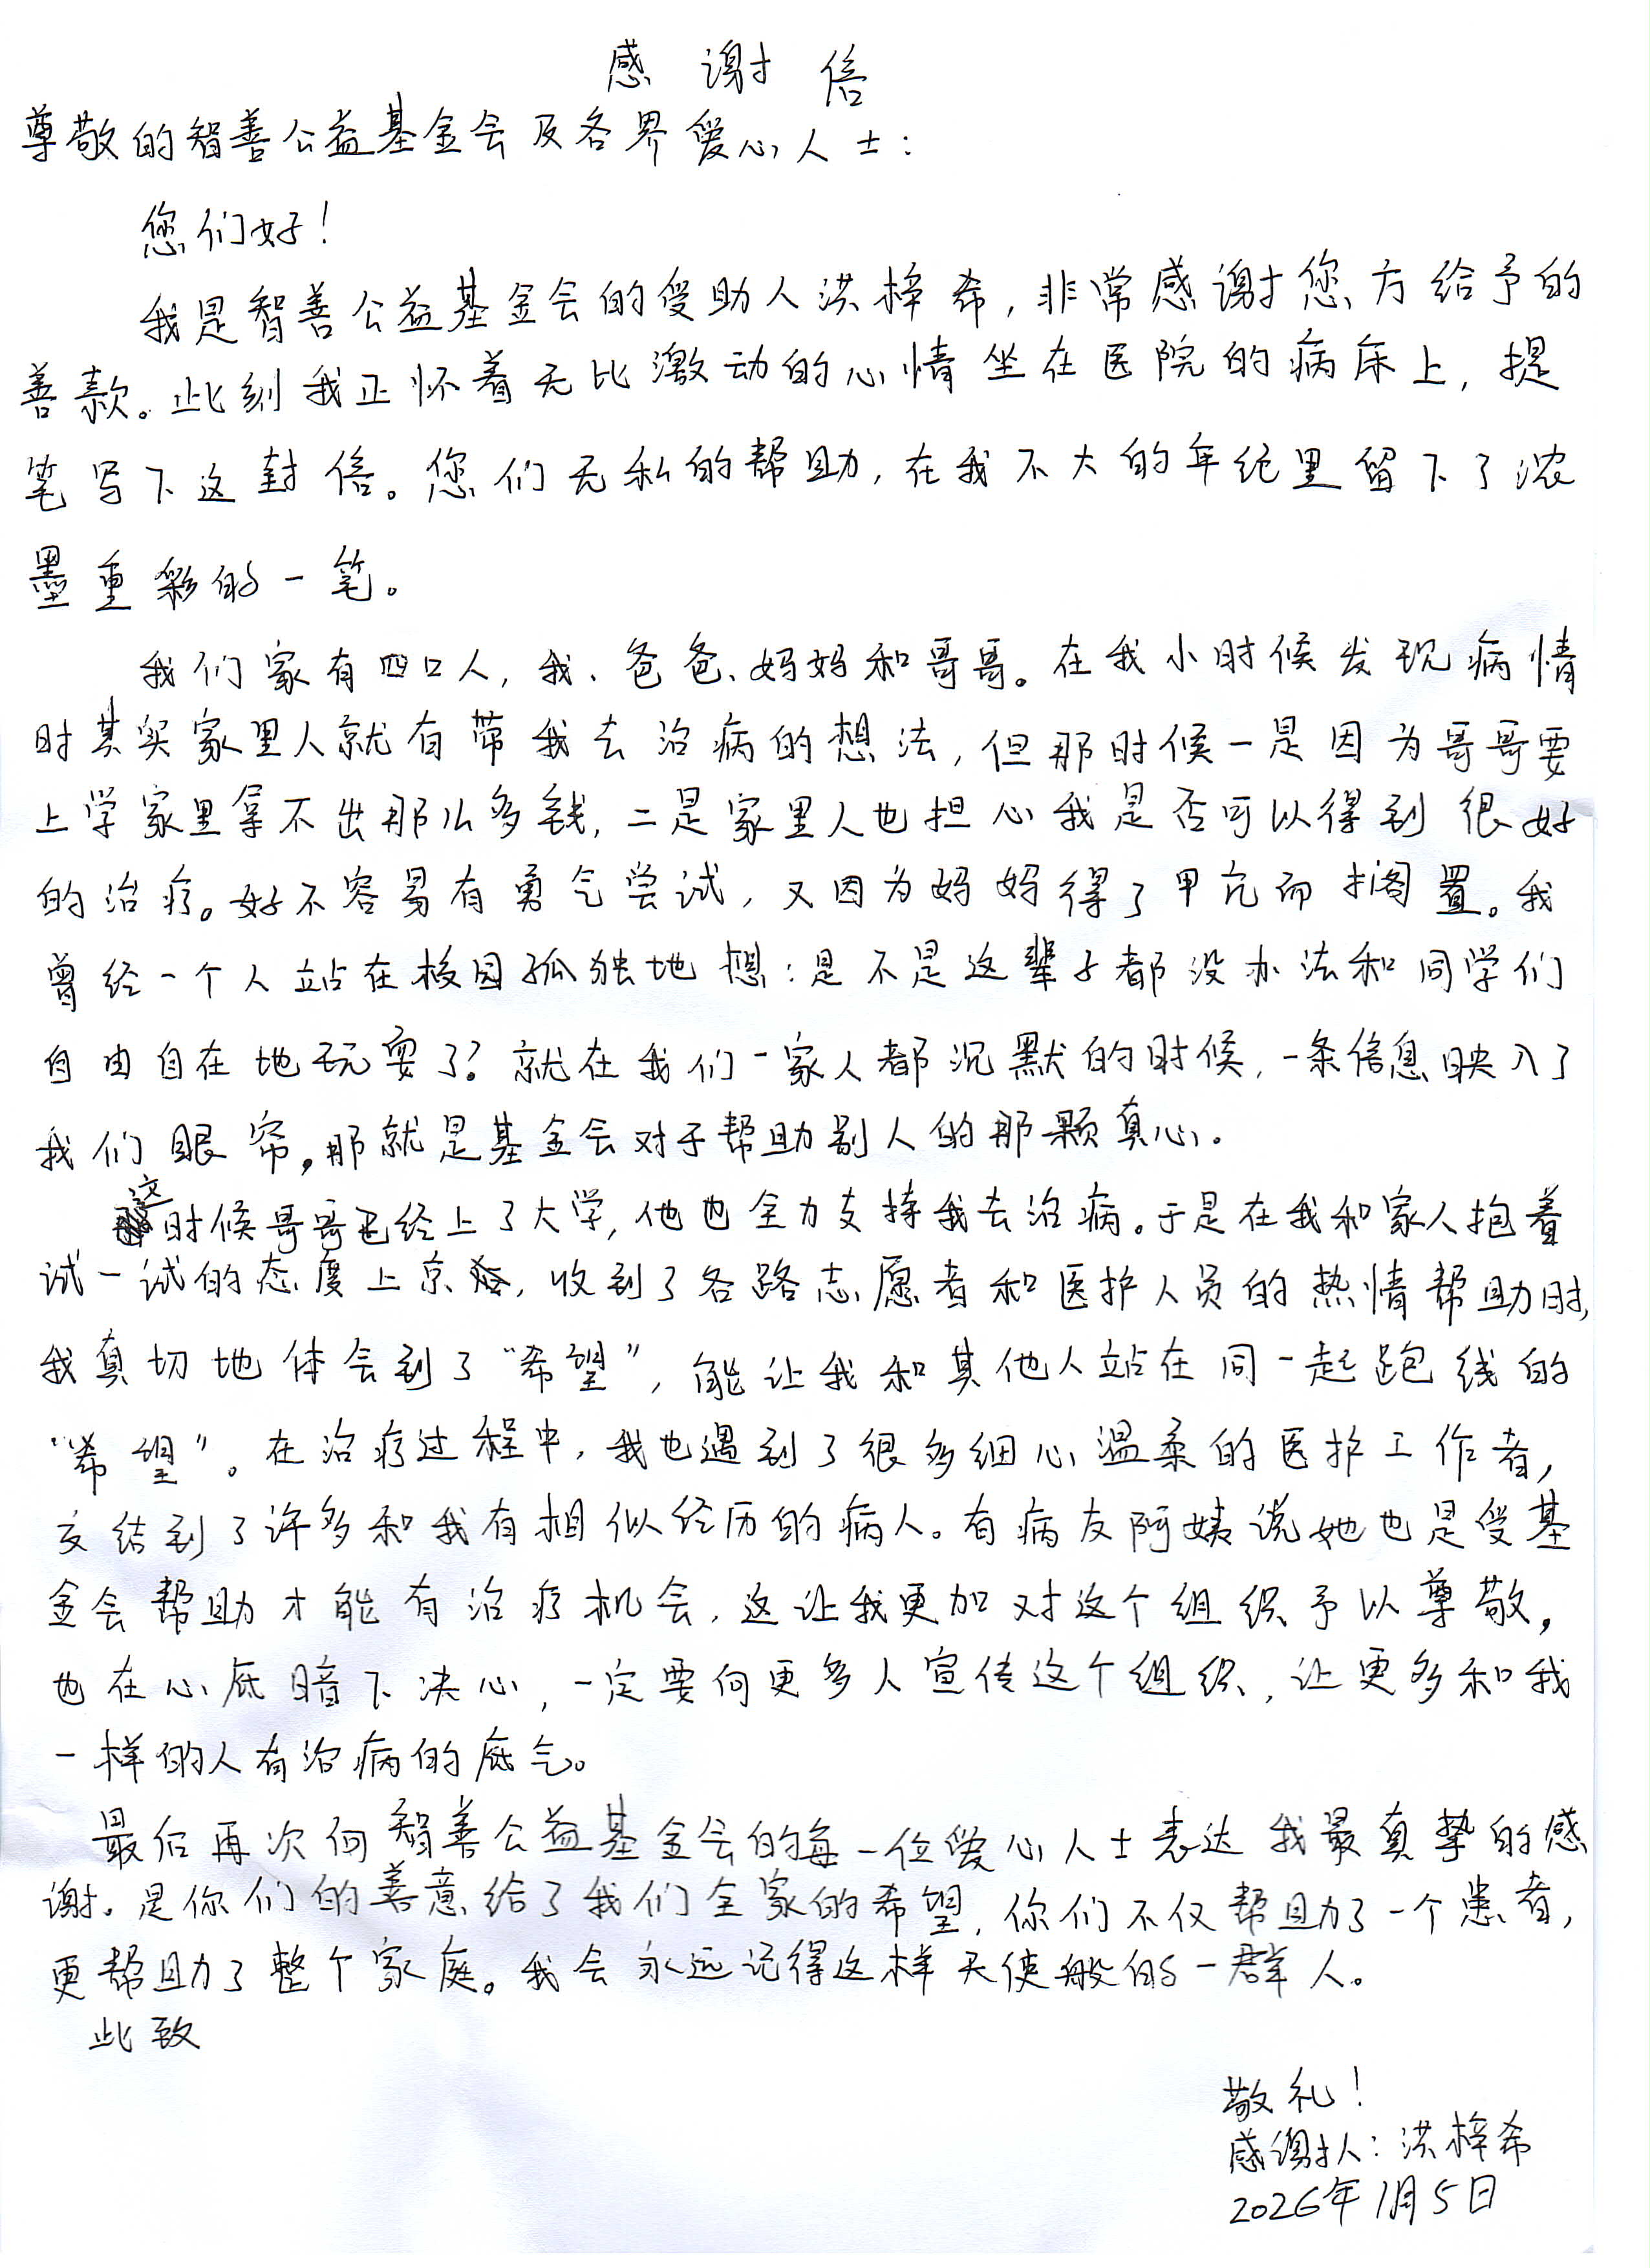 感谢信
尊敬的智善公益基金会及各界爱心人士：
您们好！
我是智善公益基金会的受助人洪梓希，非常感谢您方给予的
善款。此刻我正怀着无比激动的心情坐在医院的病床上，提
笔写下这封信。您们无私的帮助，在我不大的年纪里留下了浓
墨重彩的一笔。
我们家有四口人，我、爸爸、妈妈和哥哥。在我小时候发现病情
时其实家里人就有带我去治病的想法，但那时候一是因为哥哥要
上学家里拿不出那么多钱，二是家里人也担心我是否可以得到很好
的治疗。好不容易有勇气尝试，又因为妈妈得了甲亢而搁置。我
曾经一个人站在校园孤独地想：是不是这辈子都没办法和同学们
自由自在地玩耍了？就在我们一家人都沉默的时候，一条信息映入了
我们眼帘，那就是基金会对于帮助别人的那颗真心。
这时候哥哥已经上了大学，他也全力支持我去治病。于是在我和家人抱着
试一试的态度上京，收到了各路志愿者和医护人员的热情帮助时，
我真切地体会到了“希望”，能让我和其他人站在同一起跑线的
“希望”。在治疗过程中，我也遇到了很多细心温柔的医护工作者，
交结到了许多和我有相似经历的病人。有病友阿姨说她也是受基
金会帮助才能有治疗机会，这让我更加对这个组织予以尊敬，
也在心底暗下决心，一定要向更多人宣传这个组织，让更多和我
一样的人有治病的底气。
最后再次向智善公益基金会的每一位爱心人士表达我最真挚的感
谢。是你们的善意给了我们全家的希望，你们不仅帮助了一个患者，
更帮助了整个家庭。我会永远记得这样天使般的一群人。
此致
敬礼！
感谢人：洪梓希
2026年1月5日